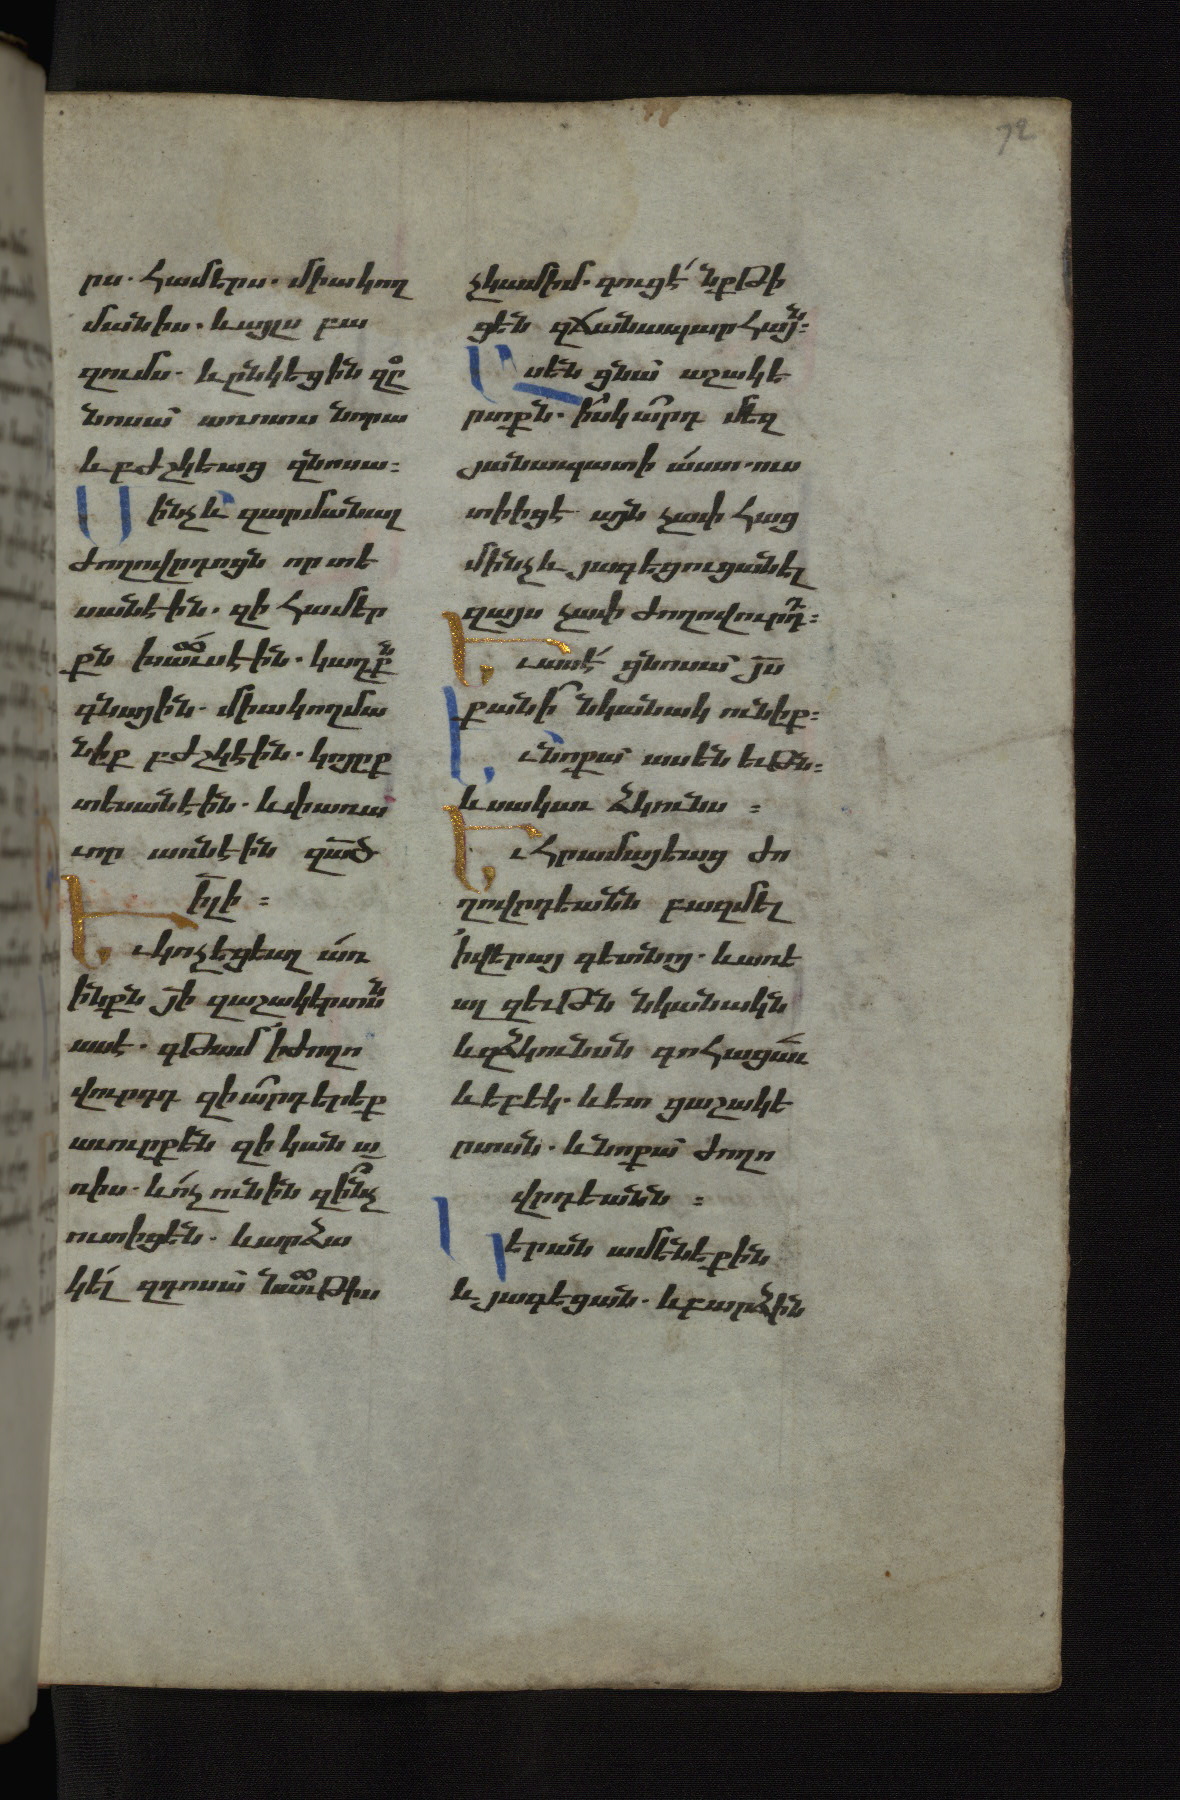 72
րս. համերս. միակող
մանիս. և այլս բա
զումս. և ընկեցին զը
նոսա՟ առոտս նորա
և բժշկեաց զնոսա։
Մինչև զարմանալ
ժողովրդոցն որ տե
սանէին. զի համեր
քն խաւսէին. կաղքն
գնային. միակողմա
նիք բժշկէին. կոյրք
տեսանէին. և փառա
ւոր առնէին զա՟ծ
ի՟լի ։
Եւ կոչեցեալ առ
ինքն յ՟ի զաշակերտսն
ասէ. գթամ ի ժողո
վուրդդ զի ա՟րդ երեք
աւուրք են զի կան ա
ռիս. և ոչ ունին զի՟նչ
ուտիցեն. և արձա
կել զդոսա՟ նաւթիս
չկամիմ. գուցէ նքթի
ցեն զճանապարհայն։
Ասեն ցնա՟ աշակե
րտքն. իսկ ա՟րդ մեզ
յանապատի աստ. ուս
տի իցէ այն չափ հաց
մինչև յագեցուցանել
զայս չափ ժողովուրդ։
Եւ ասէ ցնոսա՟ յ՟ս
քանի՞ նկանակ ունիք։
Եւ նոքա՟ ասեն եւթն։
և սակաւ ձկունս ։
Եւ հրամայեաց ժո
ղովրդեանն բազմել
ի վերայ գետնոյ. և առե
ալ զեւթն նկանակն
և զձկունսն գոհացաւ
և եբեկ. և ետ ցաշակե
րտսն. և նոքա՟ ժողո
վրդեանն ։
Կերան ամենեքին
և յագեցան. և բարձին